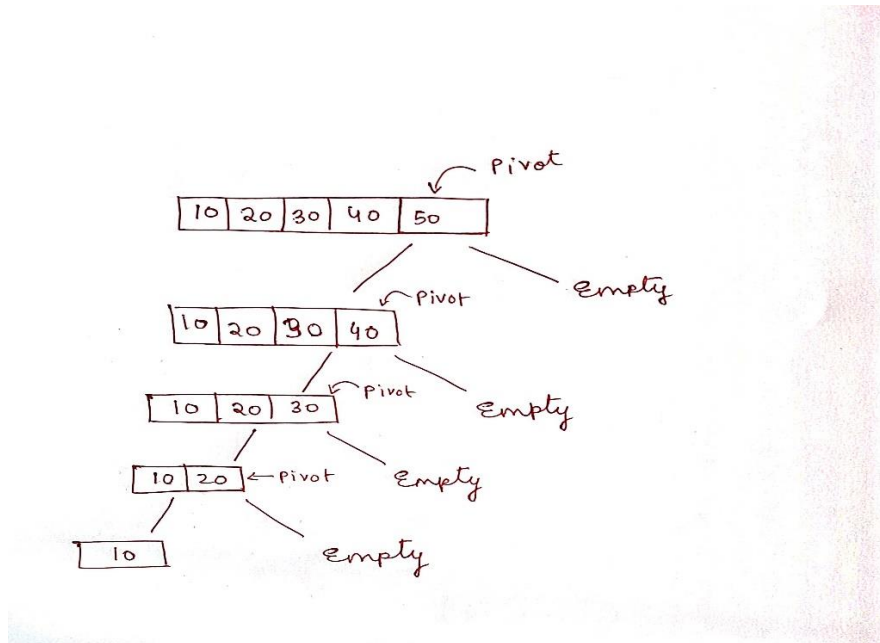 Pivot
10 20 30 40 50
Empty
Pivot
10 20 30 40
Pivot
10 20 30
Empty
10 20 Pivot
Empty
10
Empty